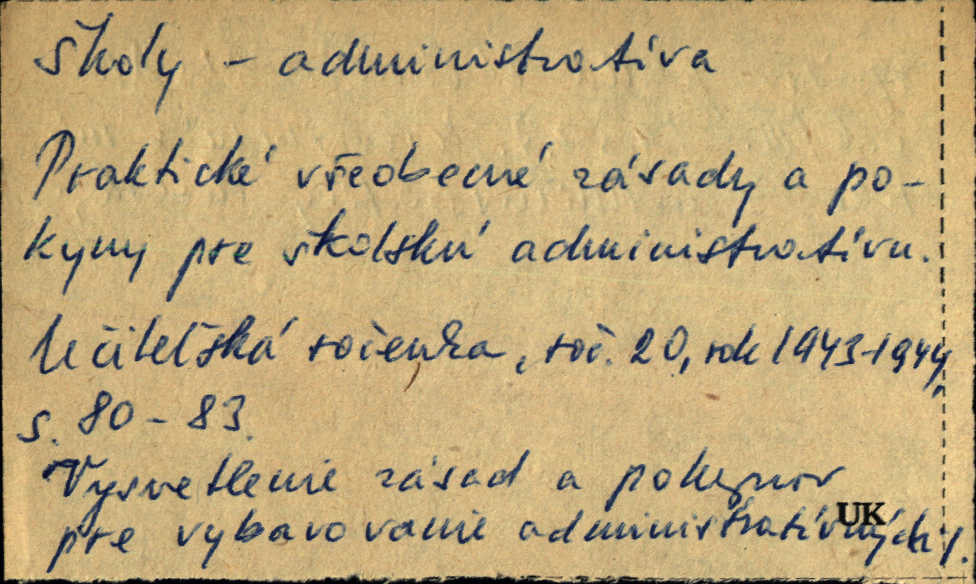 školy - administratíva
Praktické všeobecné zásady a po-
kyny pre školskú administratívu.
Učiteľská ročenka, roč. 20, rok 1943-1944,
s. 80-83.
Vysvetlenie zásad a pokynov
UK
pre vybavovanie administratívnych /.